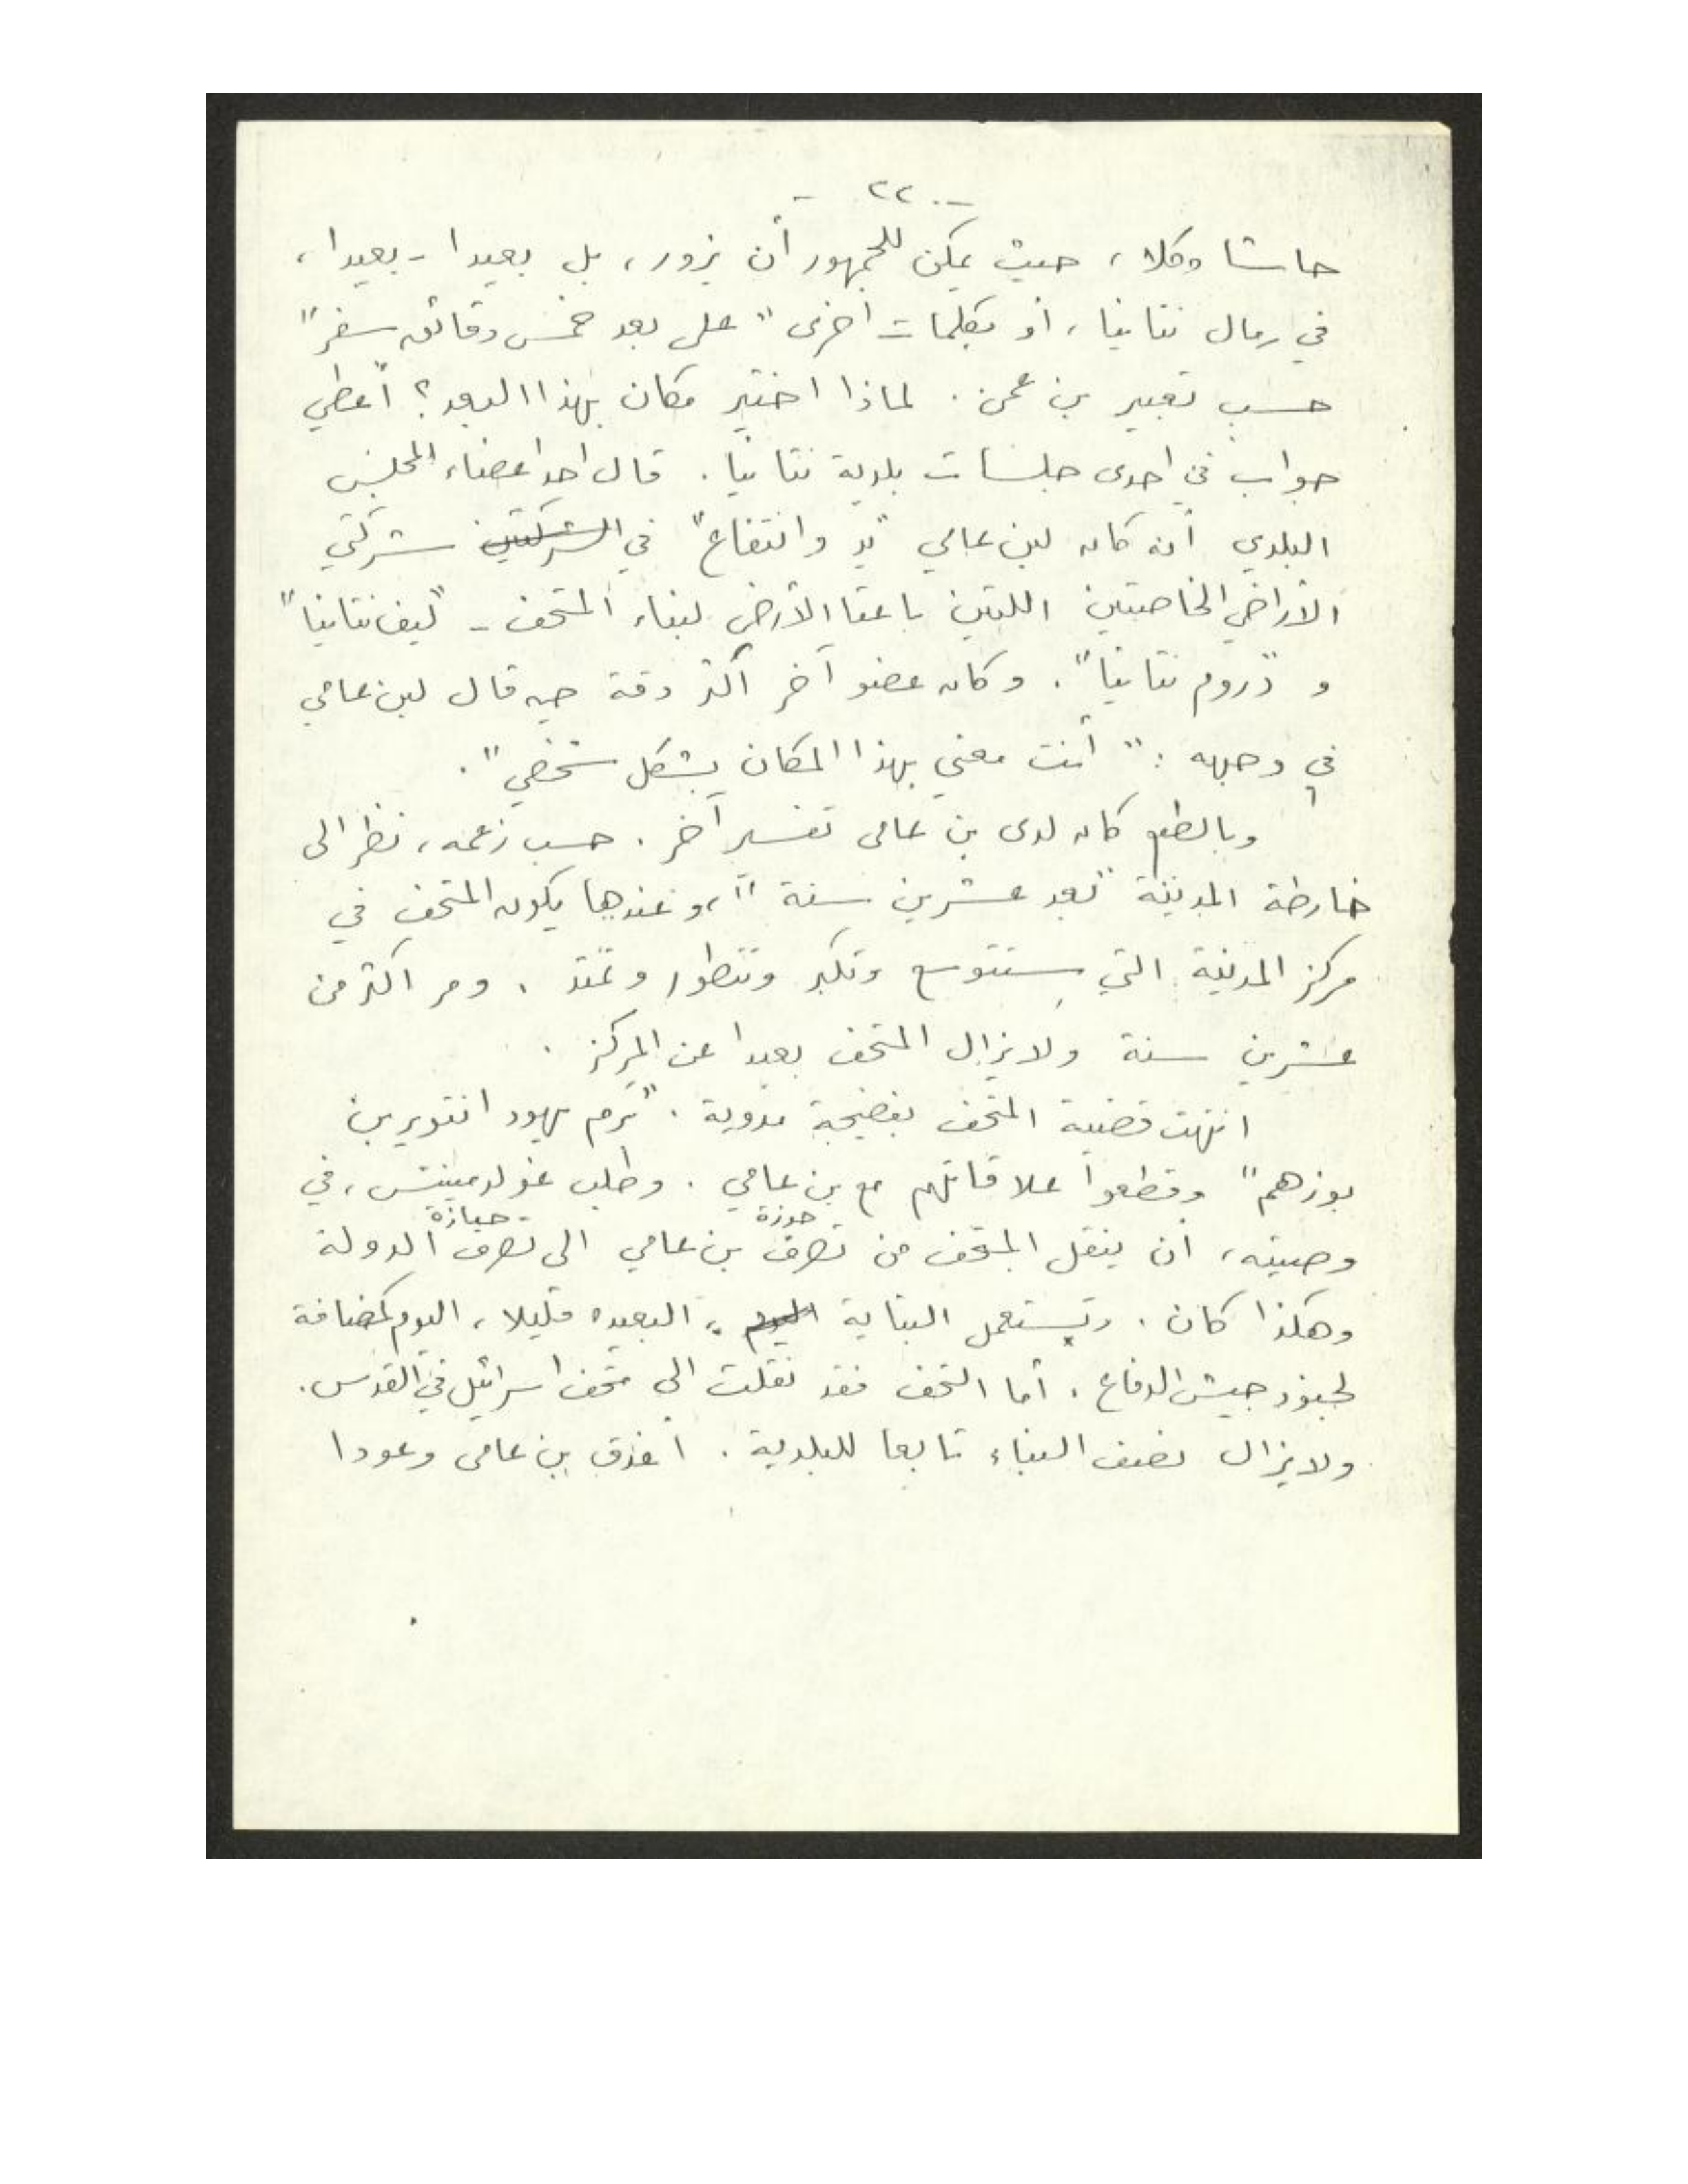 - ٢٢ -
حاشا وكلا، حيث يمكن للجمهور أن يزور، بل بعيدا - بعيدا،
في رمال نتانيا، أو بكلمات أخرى "على بعد خمس دقائق سفر"
حسب تعبير بن عمي. لماذا اختير مكان بهذا البعد؟ أعطي
جواب في احدى جلسات بلدية نتانيا. قال احد اعضاء المجلس
البلدي أنه كان لبن عامي "يد وانتفاع" في الشركتين شركتي
الأراضي الخاصتين اللتين باعتا الأرض لبناء المتحف - "ليف نتانيا"
و "دروم نتانيا". وكان عضو آخر أكثر دقة حين قال لبن عامي
في وجهه: "أنت معني بهذا المكان بشكل شخصي".
وبالطبع كان لدى بن عامي تفسير آخر. حسب زعمه، نظر الى
خارطة المدينة "بعد عشرين سنة"، وعندها يكون المتحف في
مركز المدينة التي ستتوسع وتكبر وتتطور وتمتد. ومر اكثر من
عشرين سنة ولا يزال المتحف بعيدا عن المركز.
انتهت قضية المتحف بفضيحة مدوية. "برم يهود انتويربن
بوزهم" وقطعوا علاقاتهم مع بن عامي. وطلب غولدمينتس، في
حوزة حيازة
وصيته، أن ينقل المتحف من تصرف بن عامي الى تصرف الدولة
وهكذا كان. وتستعمل البناية اليوم، البعيدة قليلا، اليوم كمضافة
لجنود جيش الدفاع. أما التحف فقد نقلت الى متحف اسرائيل في القدس.
ولا يزال نصف البناء تابعا للبلدية. أغدق بن عامي وعودا